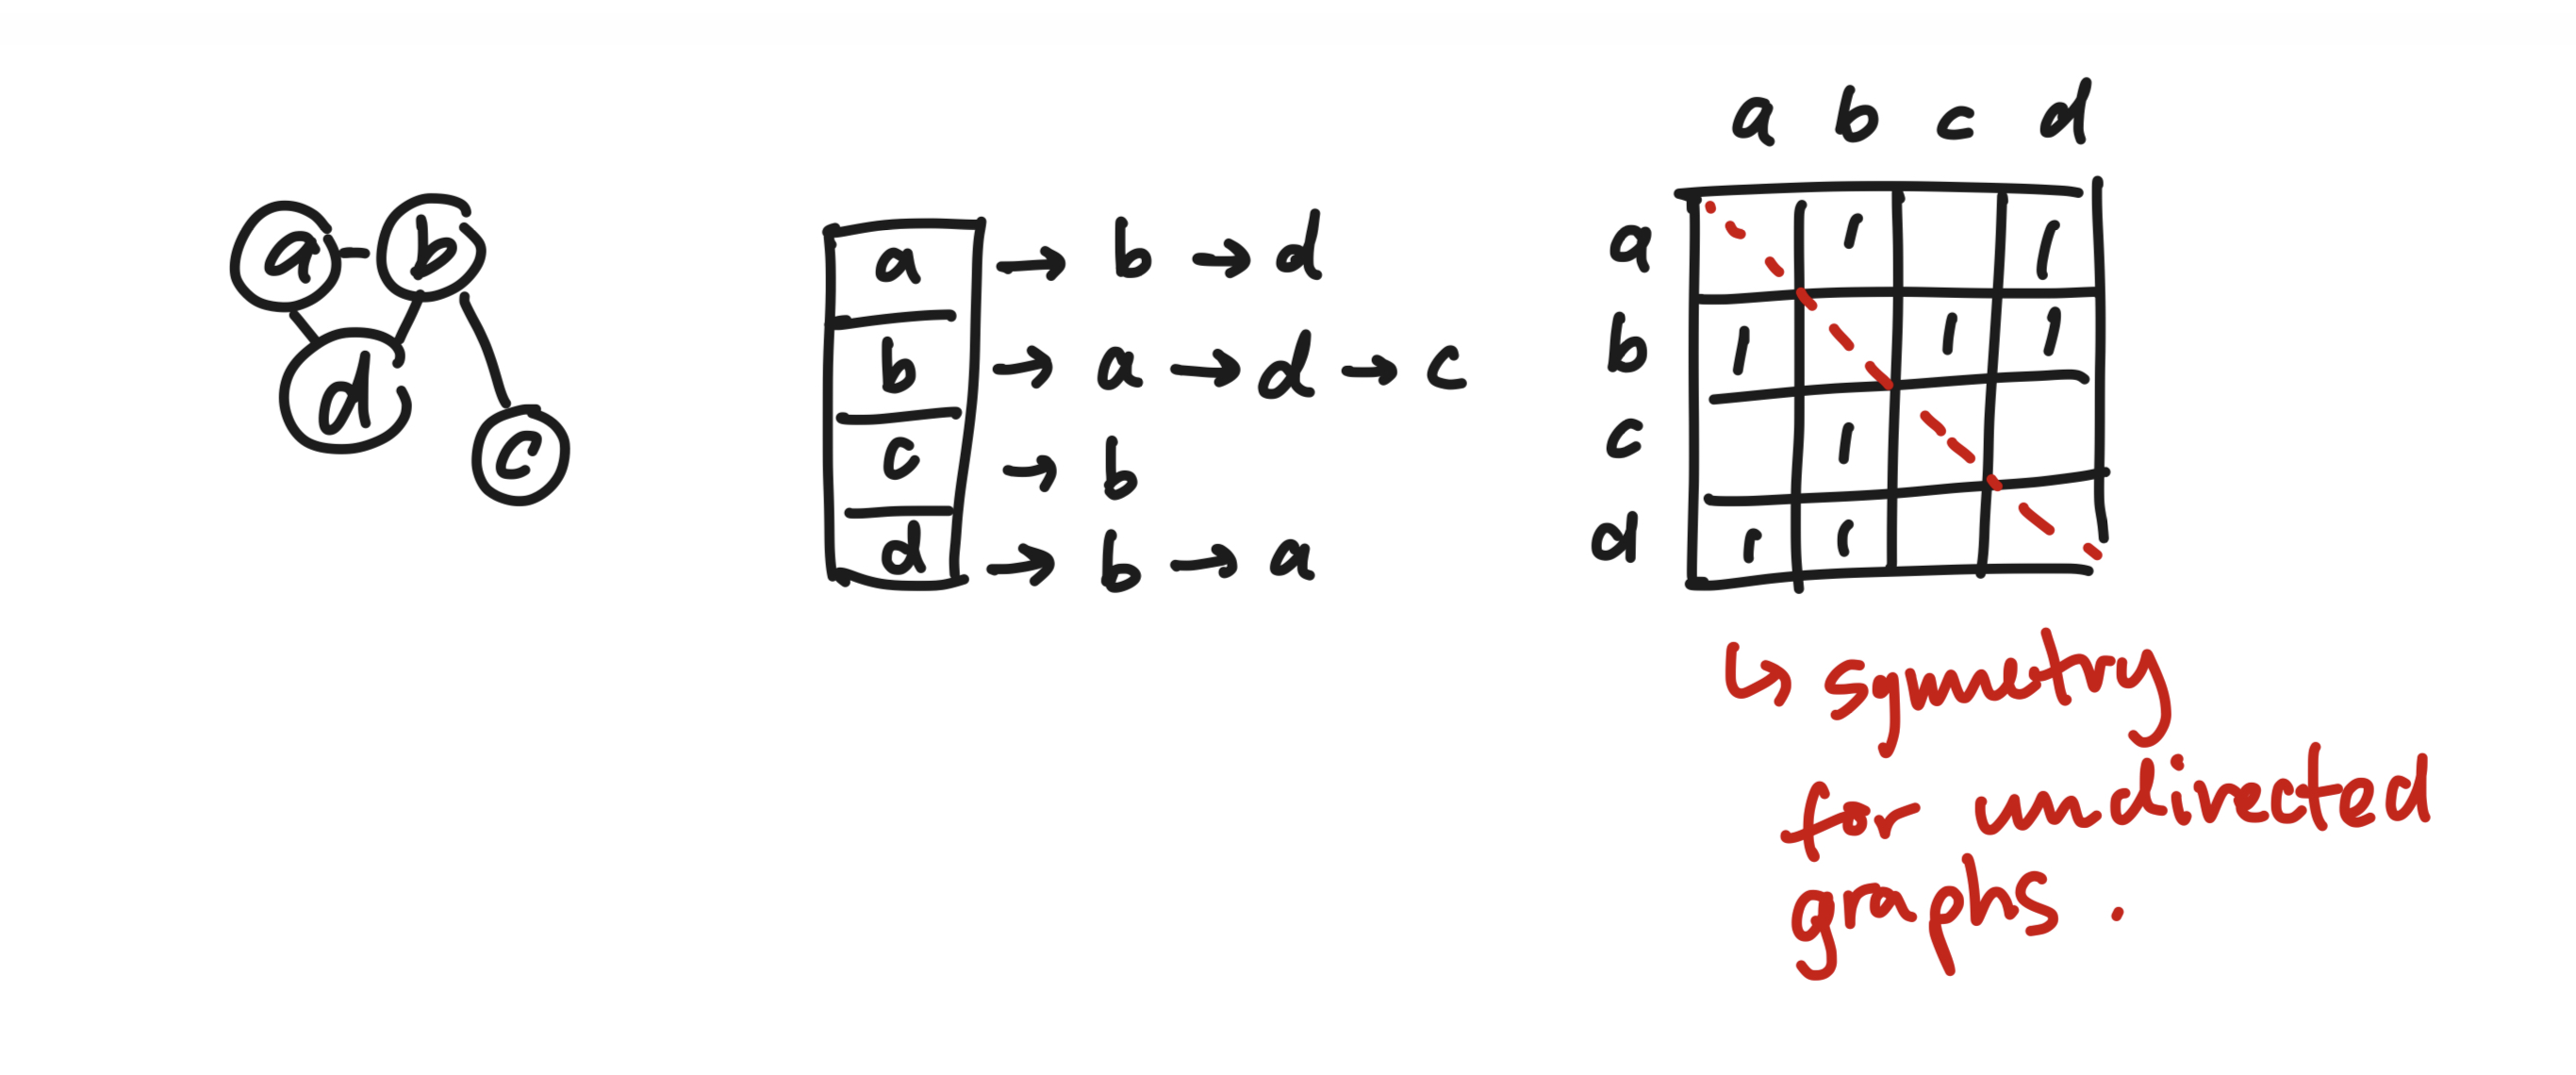 a - b
d
c
a → b → d
b → a → d → c
c → b
d → b → a
a b c d
a 1 1
b 1 1 1
c 1
d 1 1
↳ symmetry
for undirected
graphs .